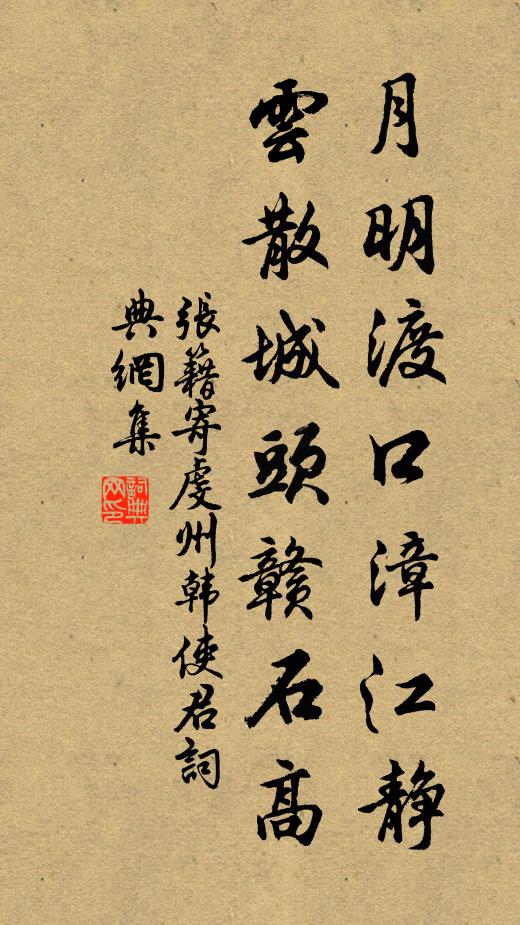 月明渡口漳江静
雲散城頭贛石高
張籍寄虔州韩使君詞
典網集
詞典网印